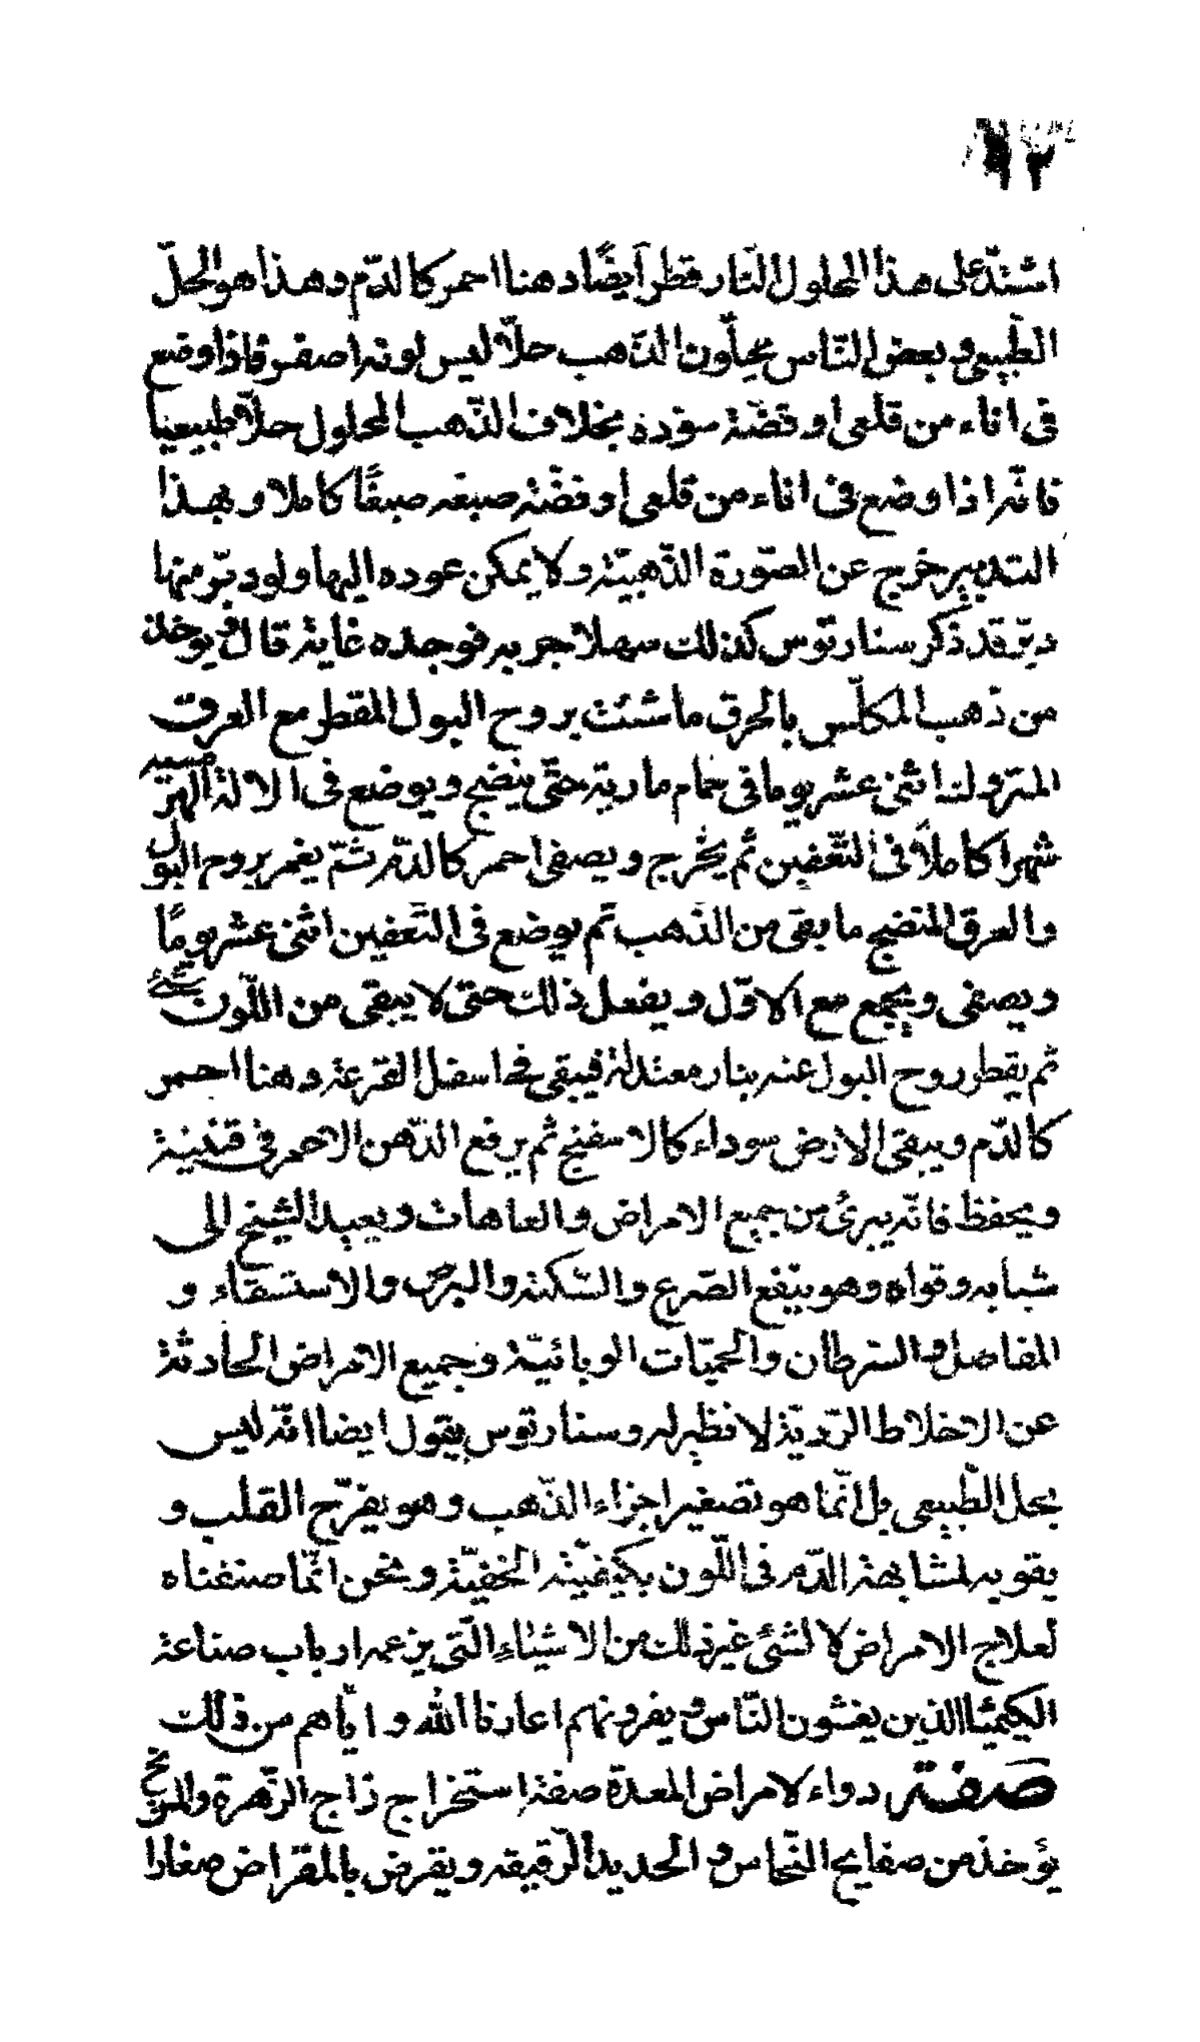 اشتدّ على هذا المحلول النّار قطر أيضًا دهنا احمر كالدّم وهذا هو الحلّ
الطّبيعى وبعض النّاس يحلّون الذّهب حلّا ليس لونه اصفر فاذا وضع
فى اناء من قلعى او فضّة سوّده بخلاف الذّهب المحلول حلّا طبيعيا
فانّه اذا وضع فى اناء من قلعى او فضّة صبغه صبغًا كاملا وبهذا
التدبير خرج عن الصّورة الذّهبيّة ولا يمكن عوده اليها ولو دبّر منها
دبّر قد ذكر سنارتوس كذلك سهلا جربه فوجده غاية قال يوخذ
من ذهب المكلّس بالحرق ما شئت بروح البول المقطر مع العرق
المتزولنا اثنى عشر يوما فى حمام مارية حتّى ينضج ويوضع فى الالة الهرمسيه
شهرا كاملاً فى التّعفين ثم يخرج ويصفى احمر كالدّم ثمّ يغمر بروح البول
والعرق المنضج ما بقى من الذّهب ثم يوضع فى التّعفين اثنى عشر يومًا
ويصفى ويجمع مع الاوّل ويفعل ذلك حتى لا يبقى من اللّون شئ
ثم يقطر روح البول عنه بنار معتدلة فيبقى فى اسفل القرعة دهنا احمر
كالدّم ويبقى الارض سوداء كالاسفنج ثم يرفع الدّهن الاحمر فى قنينة
ويحفظ فانّه يبرئ من جميع الامراض والعاهات ويعيد الشيخ الى
شبابه وقواه وهو ينفع الصّرع والسّكتة والبرص والاستسقاء و
المفاصل والسرطان والحميّات الوبائيّة وجميع الامراض الحادثة
عن الاخلاط الرّديّة لا نظير له وسنارتوس يقول ايضا انّه ليس
بحل الطّبيعى بل انّما هو تصغير اجزاء الذّهب وهو يفرّح القلب و
يقويه لمشابهة الدّم فى اللّون بكيفيّته الخفيّة ونحن انّما صنفناه
لعلاج الامراض لا لشئ غير ذلك من الاشياء الّتى يزعم ارباب صناعة
الكيميا الذين يغشون النّاس ويغرونهم اعاذنا الله وايّاهم من ذلك
صفة دواء لامراض المعدة صفة استخراج زاج الزّهرة والمريخ
يؤخذ من صفايح النّحاس و الحديد الرّقيقه ويقرض بالمقراض صغارا